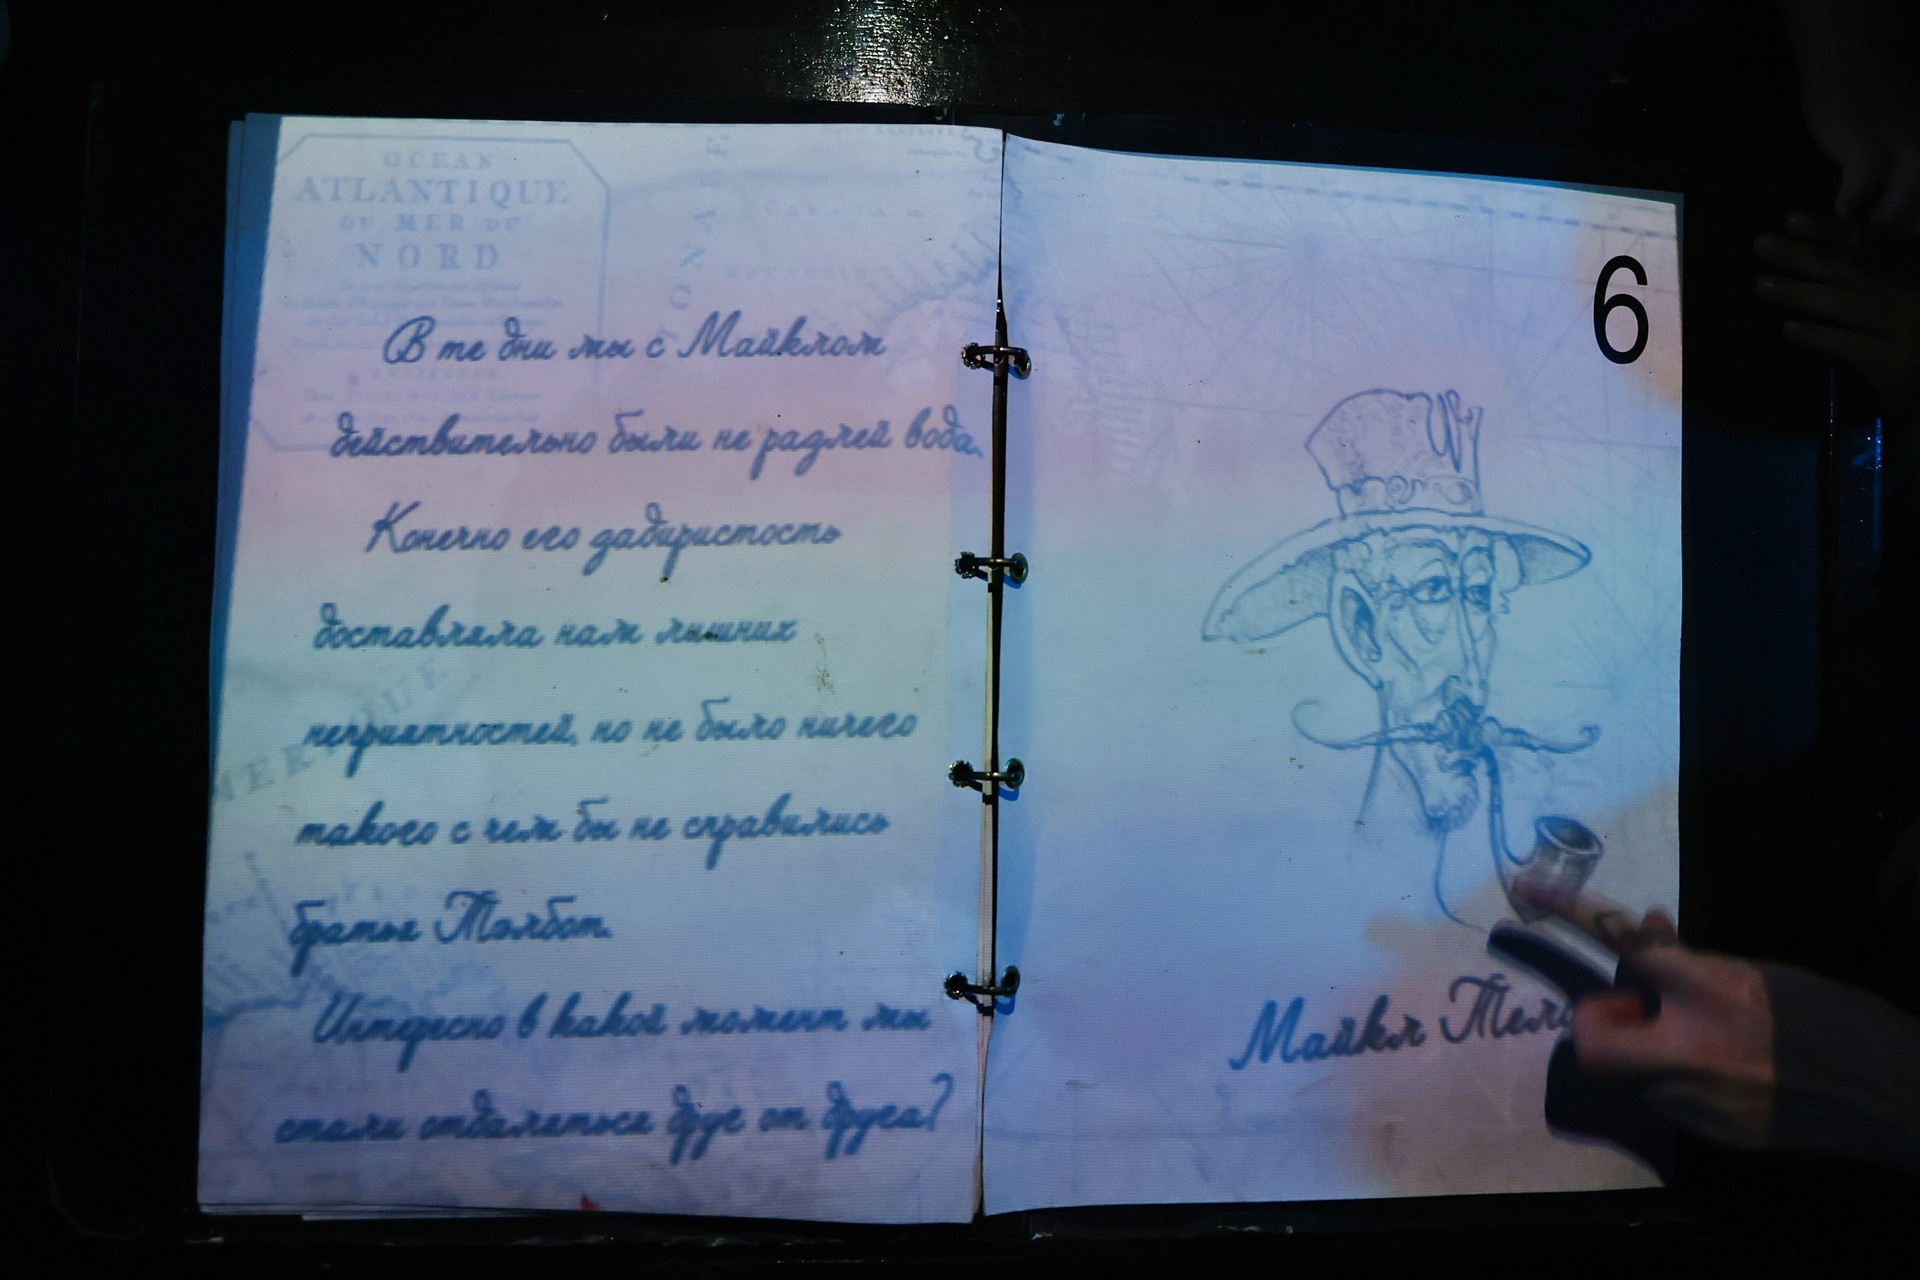 OCEAN
ATLANTIQUE
OU MER DU
NORD
В те дни мы с Майклом
действительно были не разлей вода.
Конечно его задиристость
доставляла нам лишних
неприятностей, но не было ничего
такого с чем бы не справились
братья Толбот.
Интересно в какой момент мы
стали отдаляться друг от друга?
6
Майкл